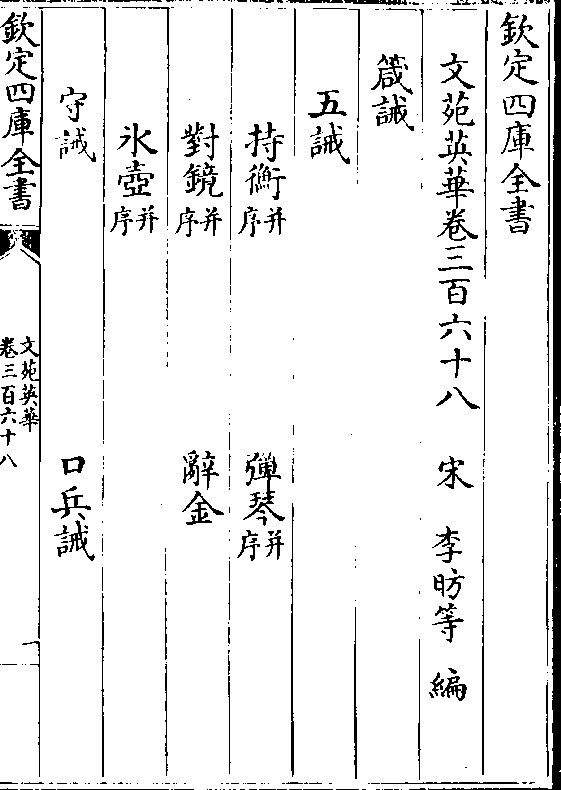 欽定四庫全書
文苑英華卷三百六十八　宋　李昉等　編
箴誡
五誡
持衡并序　彈琴并序
對鏡并序　辭金
氷壺并序
守誡　口兵誡
欽定四庫全書
文苑英華
卷三百六十八
一